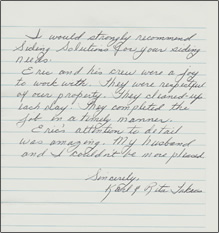 I would strongly recommend
Siding Solutions for your siding
needs.
Eric and his crew were a joy
to work with. They were respectful
of our property. They cleaned up
each day. They completed the
job in a timely manner.
Eric's attention to detail
was amazing. My husband
and I couldn't be more pleased.
Sincerely,
Karl & Rita